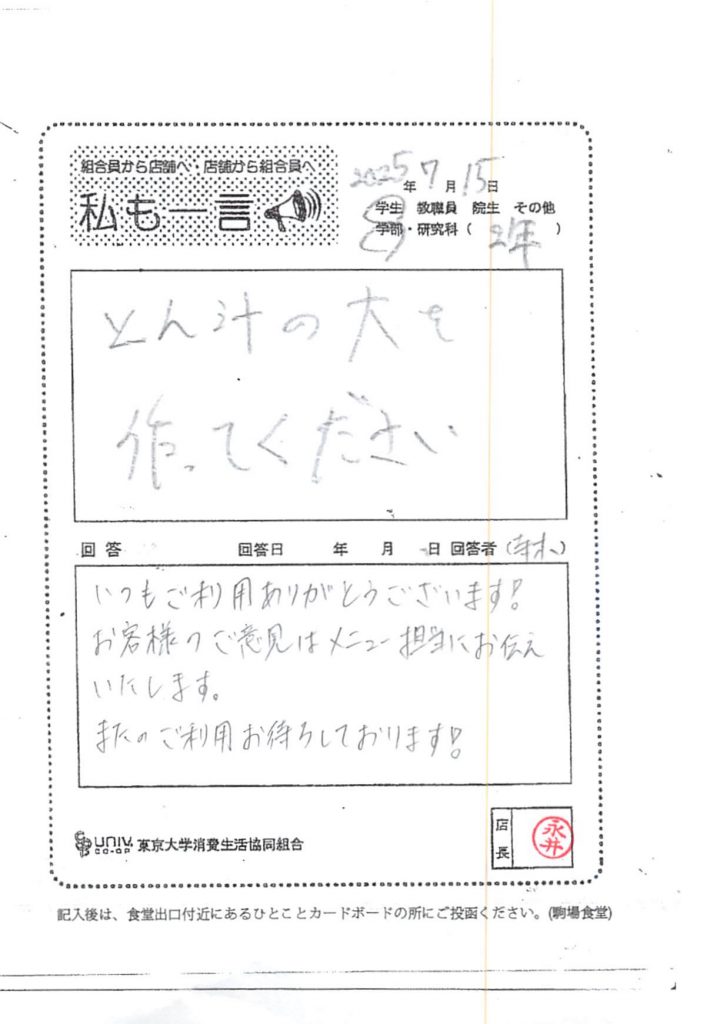 組合員から店舗へ・店舗から組合員へ
私も一言
2025年7月15日
学生 教職員 院生 その他
学部・研究科( 2年 )
とん汁の大を
作ってください
回答 回答日 年 月 日 回答者(寺木)
いつもご利用ありがとうございます!
お客様のご意見はメニュー担当にお伝え
いたします。
またのご利用お待ちしております!
店長
永井
UNIV. CO-OP 東京大学消費生活協同組合
記入後は、食堂出口付近にあるひとことカードボードの所にご投函ください。(駒場食堂)